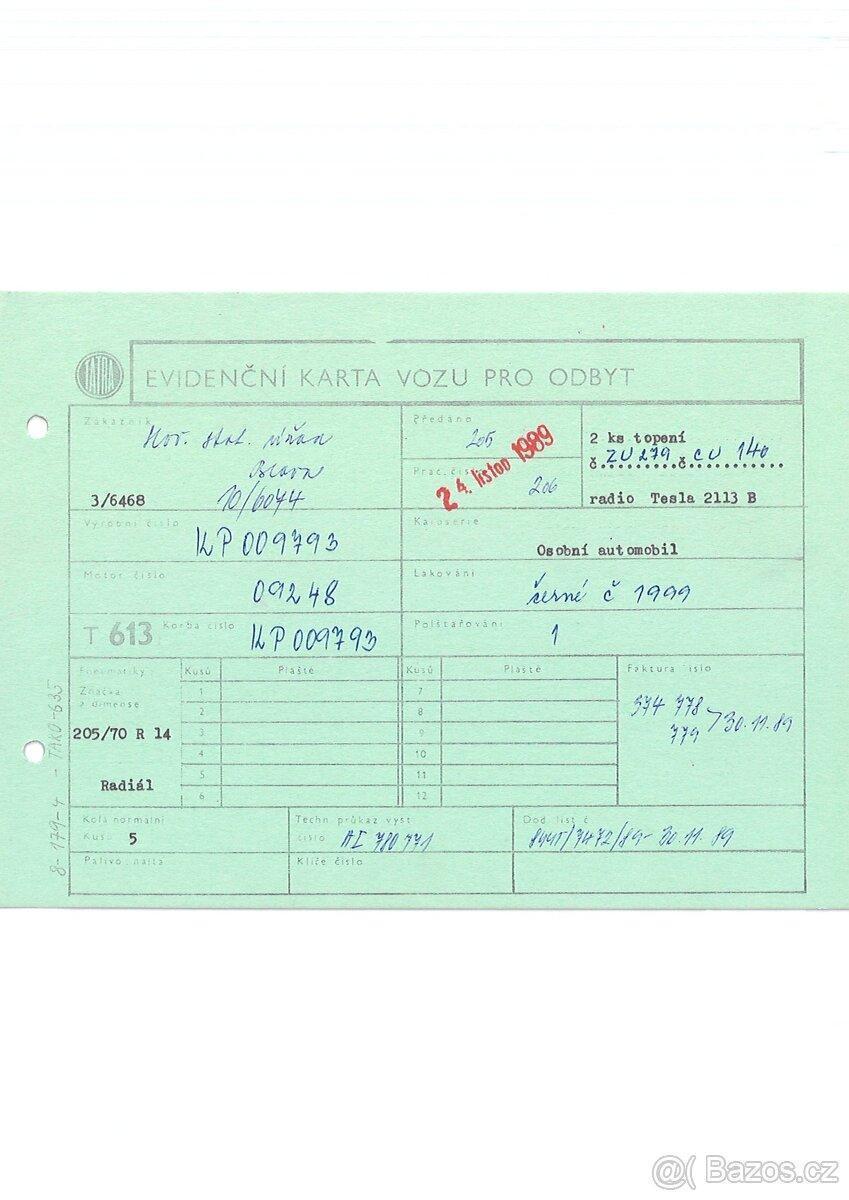 TATRA
EVIDENČNÍ KARTA VOZU PRO ODBYT
Zákazník
3/6468
10/6044
Předáno
205
24. listop 1989
Prac. číslo
206
2 ks topení
č. ZU 279 č CU 140
radio Tesla 2113 B
Výrobní číslo
KP 009793
Karoserie
Osobní automobil
Motor číslo
09248
Lakování
černé č 1999
T 613 Korba číslo
KP 009793
Polštařování
1
Pneumatiky
Značka
a dimense
205/70 R 14
Radiál
Kusů Pláště
1
2
3
4
5
6
Kusů Pláště
7
8
9
10
11
12
Faktura číslo
574 778
779 / 30.11.89
Kola normální
Kusů 5
Techn. průkaz vyst
číslo AI 780771
Dod. list č
30.11.89
Palivo: nafta
Klíče číslo
8-179-4 - TAKO-635
@( Bazos.cz